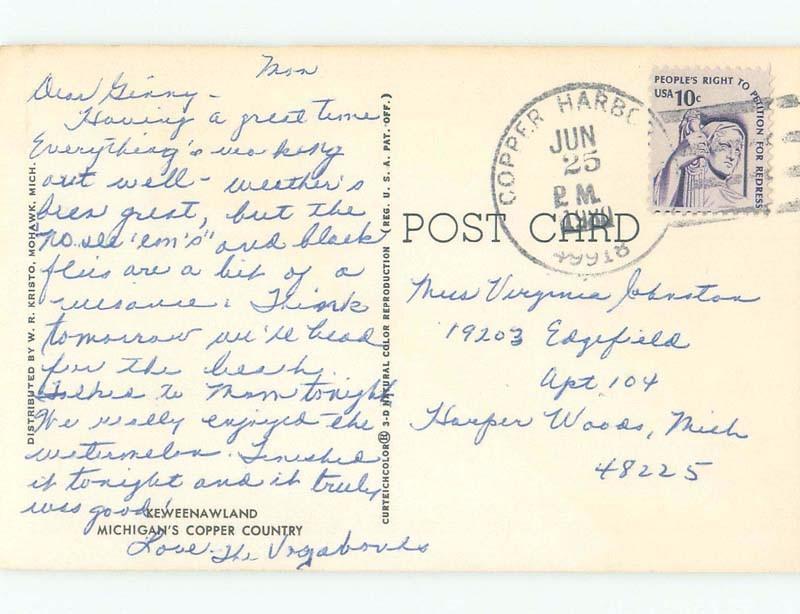 Mon
Dear Ginny -
Having a great time
Everything's working
out well - weather's
been great, but the
"no see 'em's" and black
flies are a bit of a
nuisance. Think
tomorrow we'll head
for the beach.
Talked to Mom tonight
We really enjoyed the
watermelon. Finished
it tonight and it truly
was good!
Love The Vagabonds
KEWEENAWLAND
MICHIGAN'S COPPER COUNTRY
DISTRIBUTED BY W. R. KRISTO, MOHAWK, MICH.
CURTEICHCOLOR® 3-D NATURAL COLOR REPRODUCTION (REG. U. S. A. PAT. OFF.)
POST CARD
COPPER HARBO
JUN
25
PM
1980
49918
PEOPLE'S RIGHT TO PETITION FOR REDRESS
USA 10c
Miss Virginia Johnston
19203 Edgefield
Apt 104
Harper Woods, Mich
48225